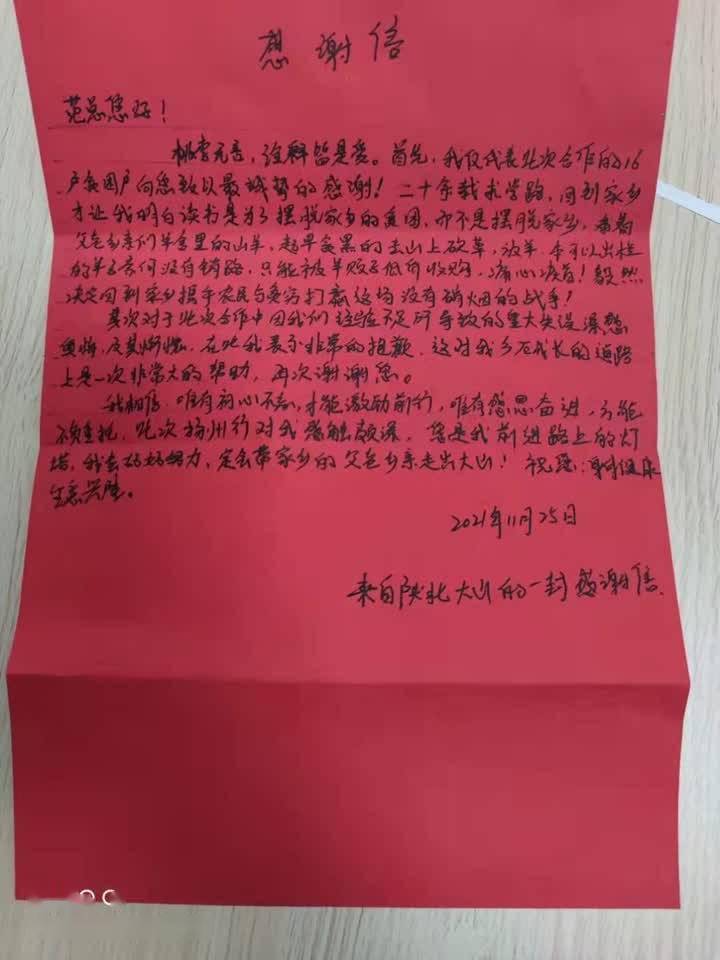 感谢信
范总您好！
桃李无言，诠释皆是爱。首先，我仅代表此次合作的16
户贫困户向您致以最诚挚的感谢！二十余载求学路，回到家乡
才让我明白读书是为了摆脱家乡的贫困，而不是摆脱家乡，看着
父老乡亲们羊舍里的山羊，起早贪黑的去山上砍草，放羊，本可以出栏
的羊子奈何没有销路，只能被羊贩子低价收购，痛心疾首！毅然
决定回到家乡携手农民与贫穷打赢这场没有硝烟的战争！
其次对于此次合作中因我们经验不足所导致的重大失误深感
懊悔，及其惭愧，在此我表示非常的抱歉，这对我今后成长的道路
上是一次非常大的帮助，再次谢谢您。
我相信，唯有初心不忘，才能激励前行，唯有感恩奋进，方能
不负重托，此次扬州行对我感触颇深，您是我前进路上的灯
塔，我会好好努力，定会带家乡的父老乡亲走出大山！祝您：身体健康
生意兴隆。
2021年11月25日
来自陕北大山的一封感谢信